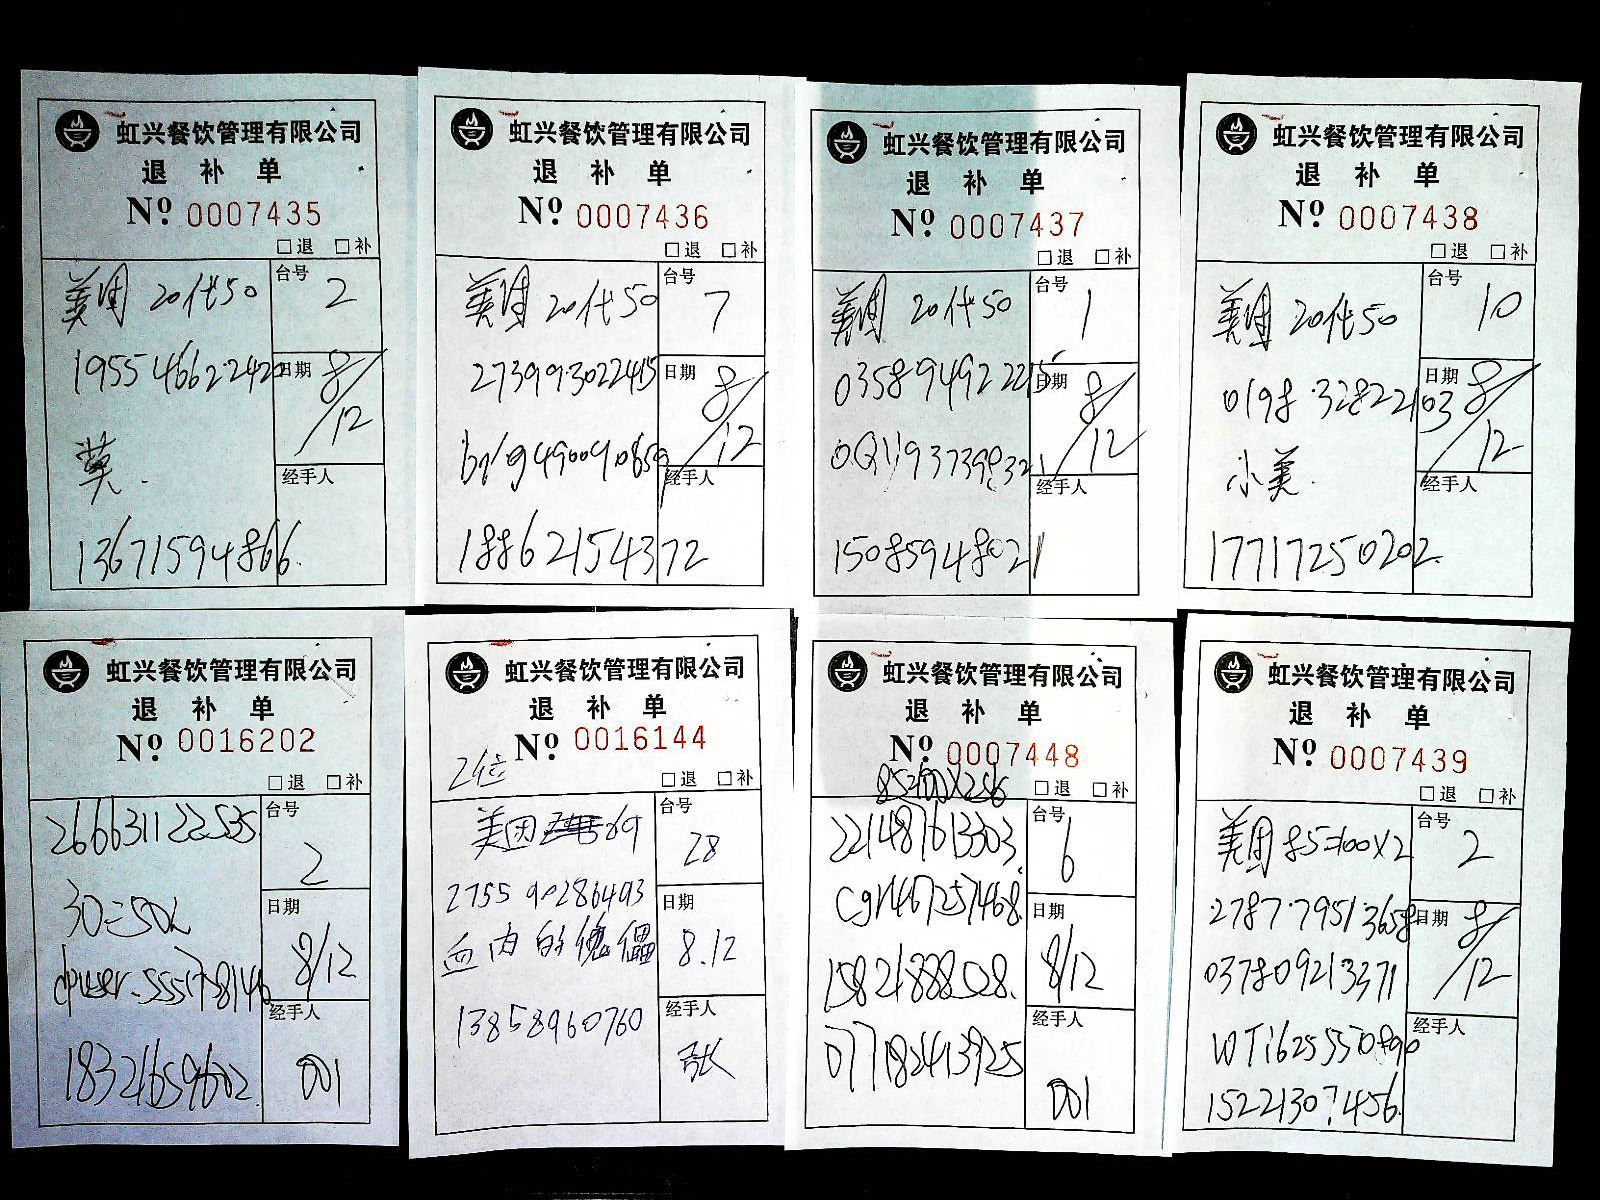 虹兴餐饮管理有限公司
退 补 单
Nº 0007435
□退 □补
美团 20代50
台号 2
1955 4662 2420
日期 8/12
莫.
经手人
13671594866.
虹兴餐饮管理有限公司
退 补 单
Nº 0007436
□退 □补
美团 20代50
台号 7
273993022415
日期 8/12
经手人
18862154372
虹兴餐饮管理有限公司
退 补 单
Nº 0007437
□退 □补
美团 20代50
台号 1
035894922215
日期 8/12
经手人
15085948021
虹兴餐饮管理有限公司
退 补 单
Nº 0007438
□退 □补
美团 20代50
台号 10
0198 32822103
日期 8/12
小美.
经手人
17717250202.
虹兴餐饮管理有限公司
退 补 单
Nº 0016202
□退 □补
266631122535
台号 2
日期 8/12
经手人 001
18321659602.
虹兴餐饮管理有限公司
退 补 单
Nº 0016144
2位
□退 □补
美团 69
台号 28
2755 90286493
日期 8.12
血肉的傀儡
13858960760
经手人 张
虹兴餐饮管理有限公司
退 补 单
Nº 0007448
□退 □补
221487613303
台号 6
cgr1467257468.
日期 8/12
15821888528.
077182413925
经手人 001
虹兴餐饮管理有限公司
退 补 单
Nº 0007439
□退 □补
美团 85=100×2
台号 2
2787 7951 3658
日期 8/12
037809213371
经手人
15221307456.